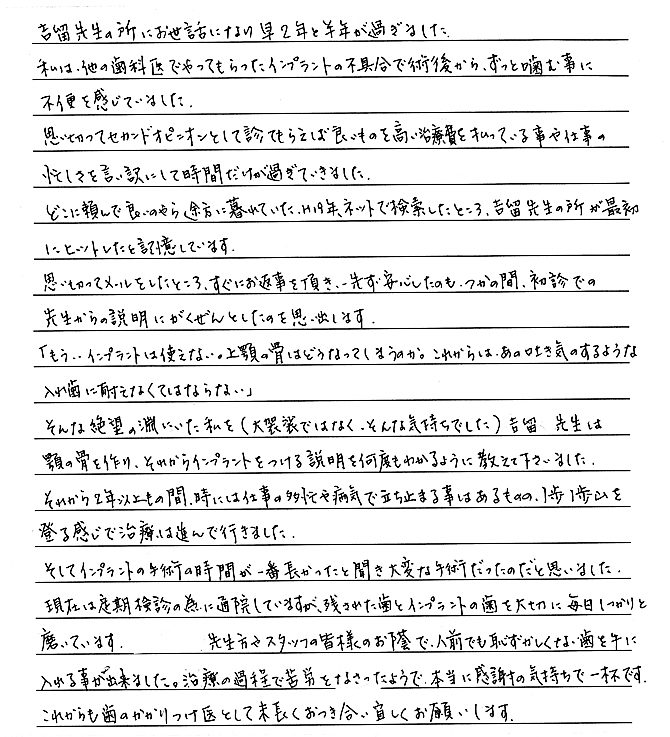 吉留先生の所にお世話になり早2年と半年が過ぎました。
私は、他の歯科医でやってもらったインプラントの不具合で術後から、ずっと噛む事に
不便を感じていました。
思い切ってセカンドオピニオンとして診てもらえば良いものを高い治療費を払っている事や仕事の
忙しさを言い訳にして時間だけが過ぎていきました。
どこに頼んで良いのやら途方に暮れていた、H19年、ネットで検索したところ、吉留先生の所が最初
にヒットしたと記憶しています。
思い切ってメールをしたところ、すぐにお返事を頂き、一先ず安心したのも、つかの間、初診での
先生からの説明にがくぜんとしたのを思い出します。
「もう‥インプラントは使えない。上顎の骨はどうなってしまうのか。これからは、あの吐き気のするような
入れ歯に耐えなくてはならない」
そんな絶望の淵にいた私を(大袈裟ではなく、そんな気持ちでした)吉留 先生は
顎の骨を作り、それからインプラントをつける説明を何度もわかるように教えて下さいました。
それから2年以上もの間、時には仕事の多忙や病気で立ち止まる事はあるものの、1歩1歩山を
登る感じで治療は進んで行きました。
そしてインプラントの手術の時間が一番長かったと聞き大変な手術だったのだと思いました。
現在は定期検診の為に通院していますが、残された歯とインプラントの歯を大切に毎日しっかりと
磨いています。 先生方やスタッフの皆様のお陰で、人前でも恥ずかしくない歯を手に
入れる事が出来ました。治療の過程で苦労をなさったようで、本当に感謝の気持ちで一杯です。
これからも歯のかかりつけ医として末長くおつき合い宜しくお願いします。